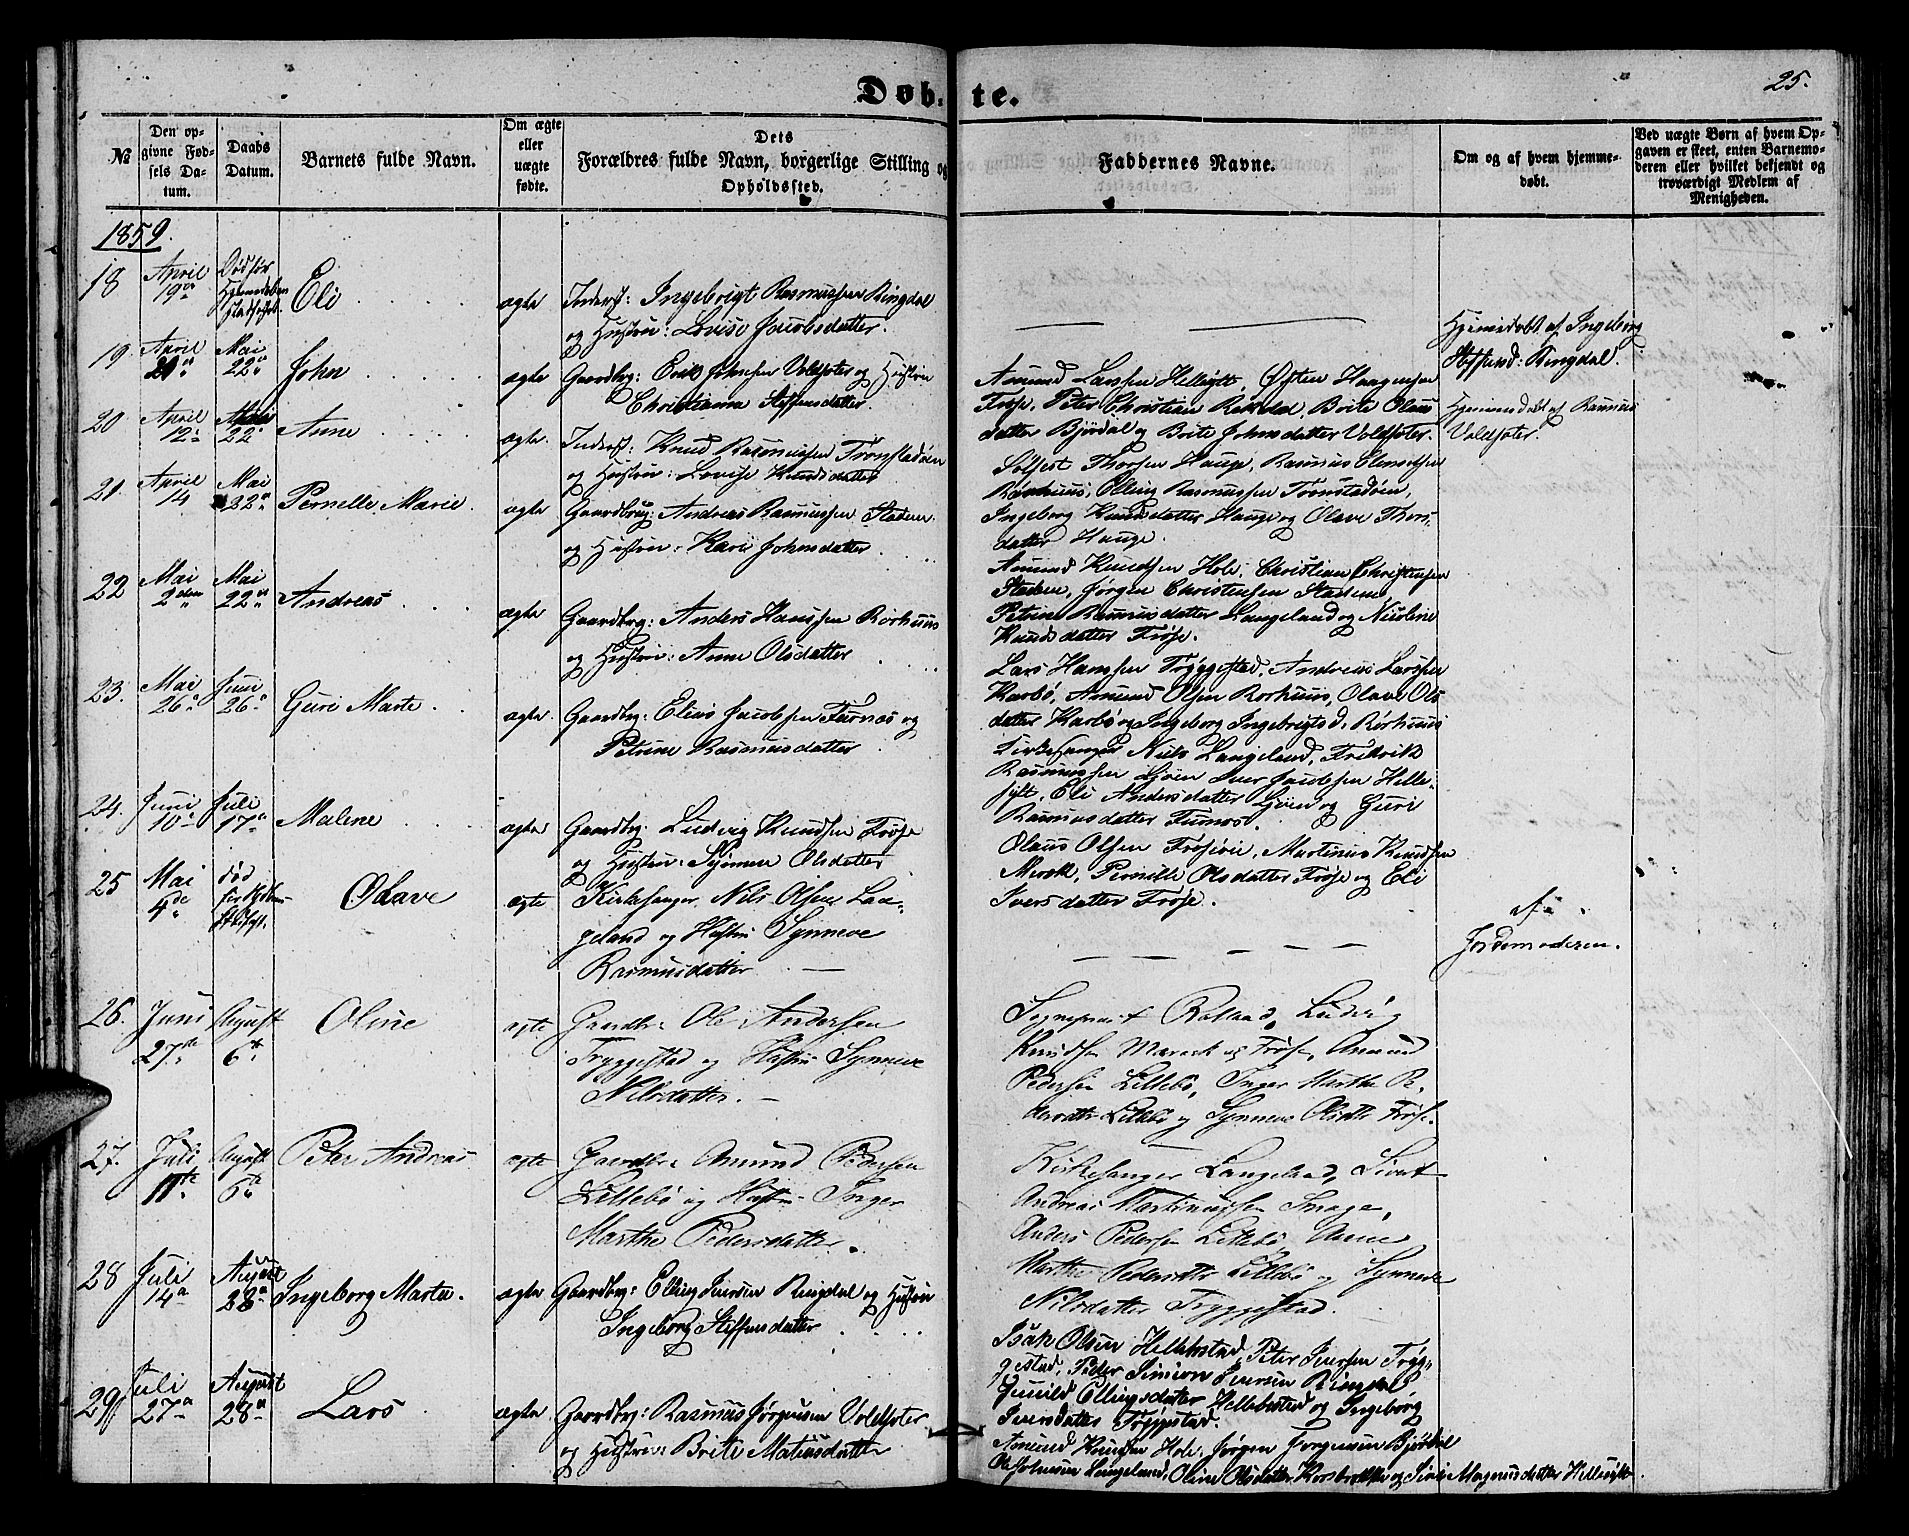 Døb- te.
25.
№
Den opgivne Fødsels Datum.
Daabs Datum.
Barnets fulde Navn.
Om ægte eller uægte fødte.
Dets Forældres fulde Navn, borgerlige Stilling og Opholdssted.
Faddernes Navne.
Om og af hvem hjemmedøbt.
Ved uægte Børn af hvem Opgaven er skeet, enten Barnemoderen eller hvilket bekjendt og troværdigt Medlem af Menigheden.
1859.
18 April 19 Død før Eli ægte Inderst: Ingebrigt Rasmussen Ringdal
og Hustru: Lovise Jacobsdatter.
Hjemmedøbt af Ingeborg
Ringdal.
19. April Mai 22 John ægte Gaardbr: Erik Johnsen Voldsæter og Hustru
Christianna Steffensdatter.
Amund Larssen Hellesylt, Østen Haagensen
Frøse, Peter Christian Ramdal, Brite Olaus
datter Bjørdal og Brite Johnsdatter Voldsæter.
Hjemmedøbt af Rasmus
Voldsæter.
20 April 12 Mai 22 Anne ægte Inderst: Knud Rasmussen Tronstadøien
og Hustru: Lovise Knudsdatter
Sølfest Thorsen Hauge, Rasmus Clemetsen
Rørhuus, Elling Rasmussen Tronstadøien,
Ingeborg Knudsdatter Hauge og Olave Thors
datter Hauge.
21. April 14 Mai 22 Pernelle Marie. ægte Gaardbrug: Andreas Rasmussen Stadem
og Hustru: Kari Johnsdatter
Amund Knudsen Hole, Christian Christensen
Stadem, Jørgen Christensen Stadem,
Petrine Rasmusdatter Langeland og Nicoline
Knudsdatter Frøse.
22 Mai 2den Mai 22 Andreas ægte Gaardbrg: Anders Hanssen Rørhuus
og Hustru: Anne Olsdatter
Lars Hanssen Tryggestad, Andreas Larssen
Karbø, Amund Olsen Rørhuus, Olave Ols
datter Karbø og Ingeborg Ingebrigtsd. Rørhuus
23. Mai 26 Juni 26 Guri Marte ægte Gaardbg: Elias Jacobsen Furnæs og
Petrine Rasmusdatter
Kirkesanger Niels Langeland, Fredrik
Rasmussen Gjøen Iver Jacobsen Helle-
sylt, Eli Andersdatter Gjøen og Guri
Rasmusdatter Furnæs.
24. Juni 10 Juli 17 Malene ægte Gaardbg: Ludvig Knudsen Frøse
og Hustru: Synneve Olsdatter
Olaus Olsen Frøse, Martinus Knudsen
Merok, Pernille Olsdatter Frøse og Eli
Iversdatter Frøse.
25 Mai 4de død Olave ægte Kirkesanger Nils Olsen Lan-
geland og Hustru Synneve
Rasmusdatter —
af
Jordemoderen.
26. Juni 27de August 6te Oline ægte Gaardbr: Ole Andersen
Tryggestad og Hustru Synneve
Nilsdatter. —
Sogneprest Ludvig
Knudsen Maraak og Frøse, Amund
Pedersen Lillebø, Inger Marthe Pe-
dersdtr Lillebø og Synneve Olsdtr Frøse.
27. Juli 11te August 6te Peter Andreas ægte Gaardbr: Amund Pedersen
Lillebø og Hustru Inger
Marthe Pedersdatter.
Kirkesanger Langeland, Sivert
Andreas Martinussen Smoge,
Anders Pedersen Lillebø, Anne
Marthe Pedersdtr Lillebø og Synneve
Nilsdatter Tryggestad.
28 Juli 14 August 28 Ingeborg Marta. ægte Gaardbg: Elling Iversen Ringdal og Hustru
Ingeborg Steffensdatter
Isak Olsen Hellebostad, Peter Iversen Tryg-
gestad, Peder Simeon Iversen Ringdal
Gunild Ellingsdatter Hellebostad og Ingeborg
Iversdatter Tryggestad.
29 Juli 27 August 28 Lars ægte Gaardbg: Rasmus Jørgensen Voldsæter
og Hustru: Brite Matiasdatter
Amund Knudsen Hole, Jørgen Jørgensen Bjørdal
Ole Johnsen Langeland, Oline Olsdatter Korsbrække og Sivi Magnusdatter Hellesylt.